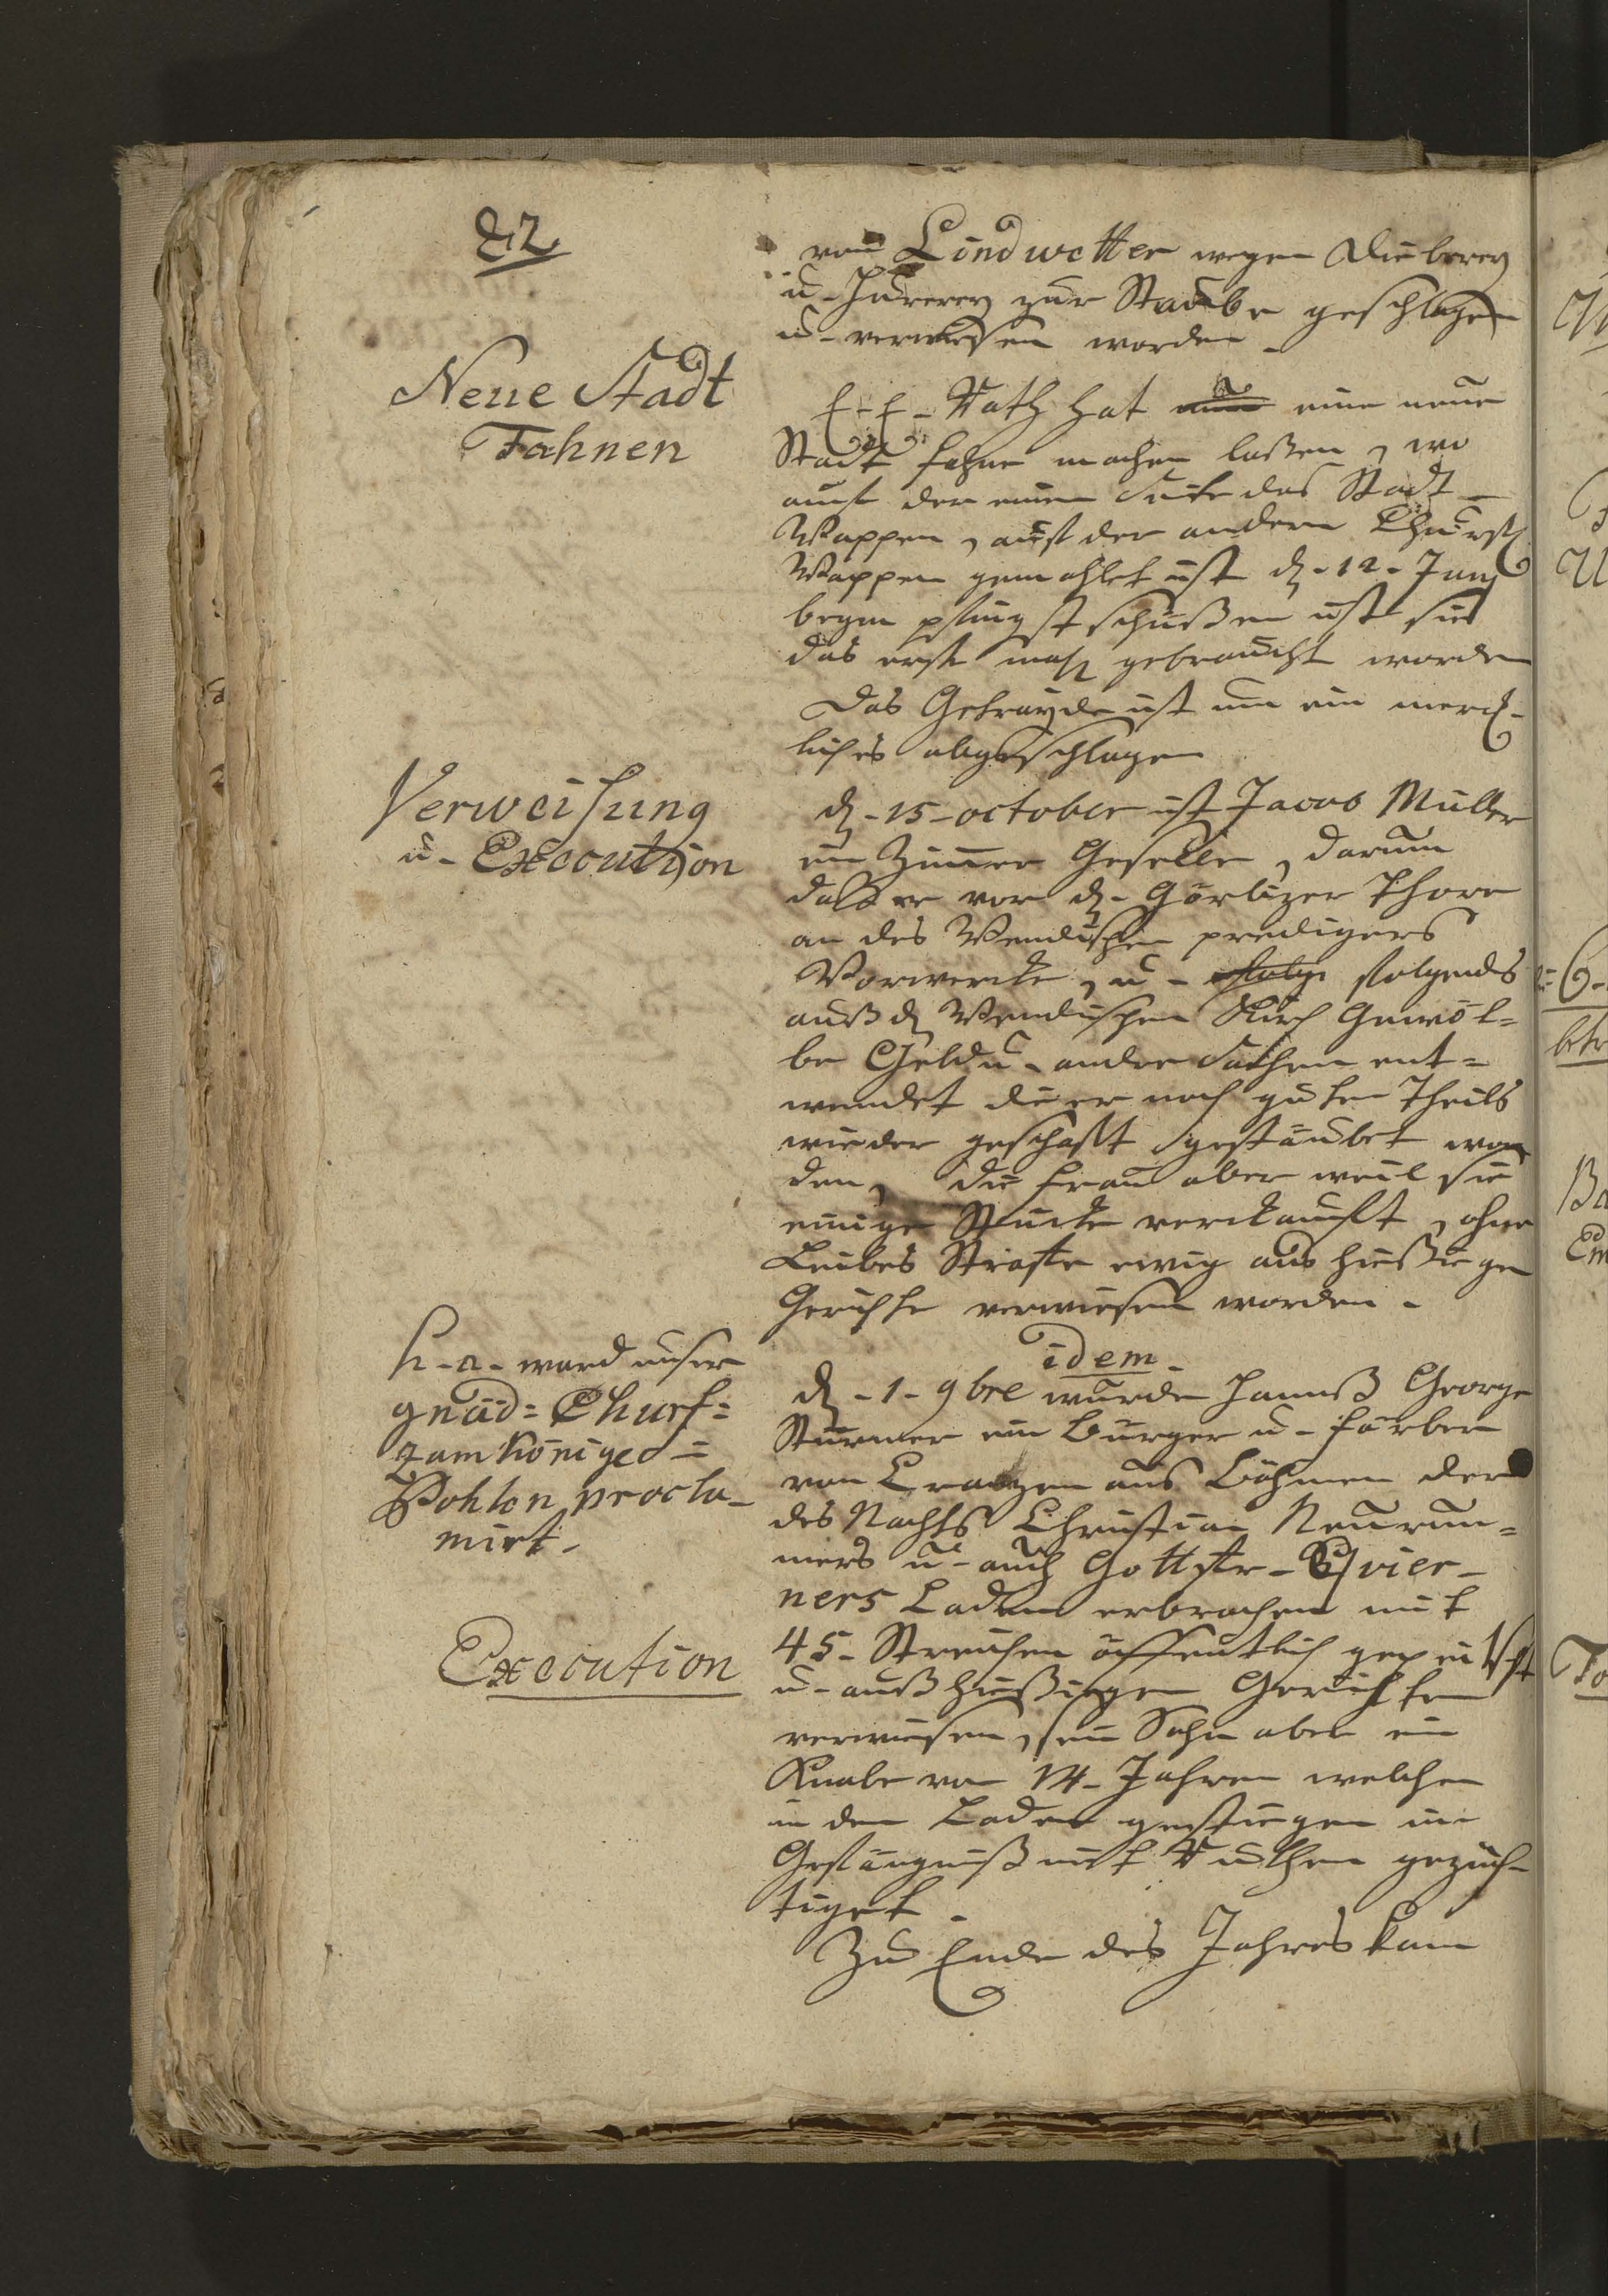 82.
von Lindwetter wegen Dieberey
u- Hurerey zur Staube geschlagen
u- verwiesen worden -
Neue Stadt
Fahnen
E-E- Rath hat eine neue
Stadt fahne machen laßen, wo
auf der einen Seite das Stadt-
Wappen, auf der andern Churf
Wappen gemahlet ist d- 12- Juny
beym pfingst schüßen ist sie
das erste mahl gebraucht worden
Das Getrayde ist um ein merck-
liches abgeschlagen
Verweisung
u- Execution
d- 15- october ist Jacob Müller
ein Zimmer Geselle, darum
daß er vor d- Görlizer Thore
an des Wendischen predigers
Vorwercke, u- folge folgends
auß d Wendischen Kirch Gewöl=
be Geld u- andre Sachen ent=
wendet die er noch guten Theils
wieder geschafft gestäubet wor
den, die frau aber weil sie
einige Stücke verckaufft, ohne
Leibes Straffe ewig aus hießigen
Gerichte verwiesen worden -
h- a- ward unser
gnäd= Churf=
zum Königed=
Pohlen procla-
mirt-
idem-
d- 1- 9bre wurde Hannß George
Stürmer ein Burger u- färber
von Cratzen aus Böhmen der
des Nachts Christian Neurun=
mers u- auch Gottfr-
ners Laden erbrochen mit
Execution
45- Streichen öffentlich gepeitscht
u- auß hießiegen Gerichten
verwiesen, sein Sohn aber ein
Knabe von 14- Jahren welcher
in den Laden gestiegen im
Gefängniß mit Ruthen gezüch-
tiget -
Zu Ende des Jahres kam